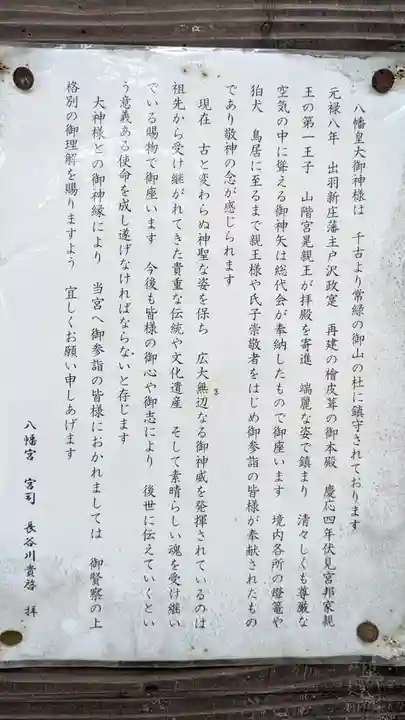 八幡皇大御神様は　千古より常緑の御山の杜に鎮守されております
元禄八年　出羽新庄藩主戸沢政寔　再建の檜皮葺の御本殿　慶応四年伏見宮邦家親
王の第一王子　山階宮晃親王が拝殿を寄進　端麗な姿で鎮まり　清々しくも尊厳な
空気の中に聳える御神矢は総代会が奉納したもので御座います　境内各所の燈籠や
狛犬　鳥居に至るまで親王様や氏子崇敬者をはじめ御参詣の皆様が奉献されたもの
であり敬神の念が感じられます
現在　古と変わらぬ神聖な姿を保ち　広大無辺なる御神威を発揮されているのは
祖先から受け継がれてきた貴重な伝統や文化遺産　そして素晴らしい魂を受け継い
でいる賜物で御座います　今後も皆様の御心や御志により　後世に伝えていくとい
う意義ある使命を成し遂げなければならないと存じます
大神様との御神縁により　当宮へ御参詣の皆様におかれましては　御賢察の上
格別の御理解を賜りますよう　宜しくお願い申しあげます
八幡宮　宮司　長谷川貴啓　拝